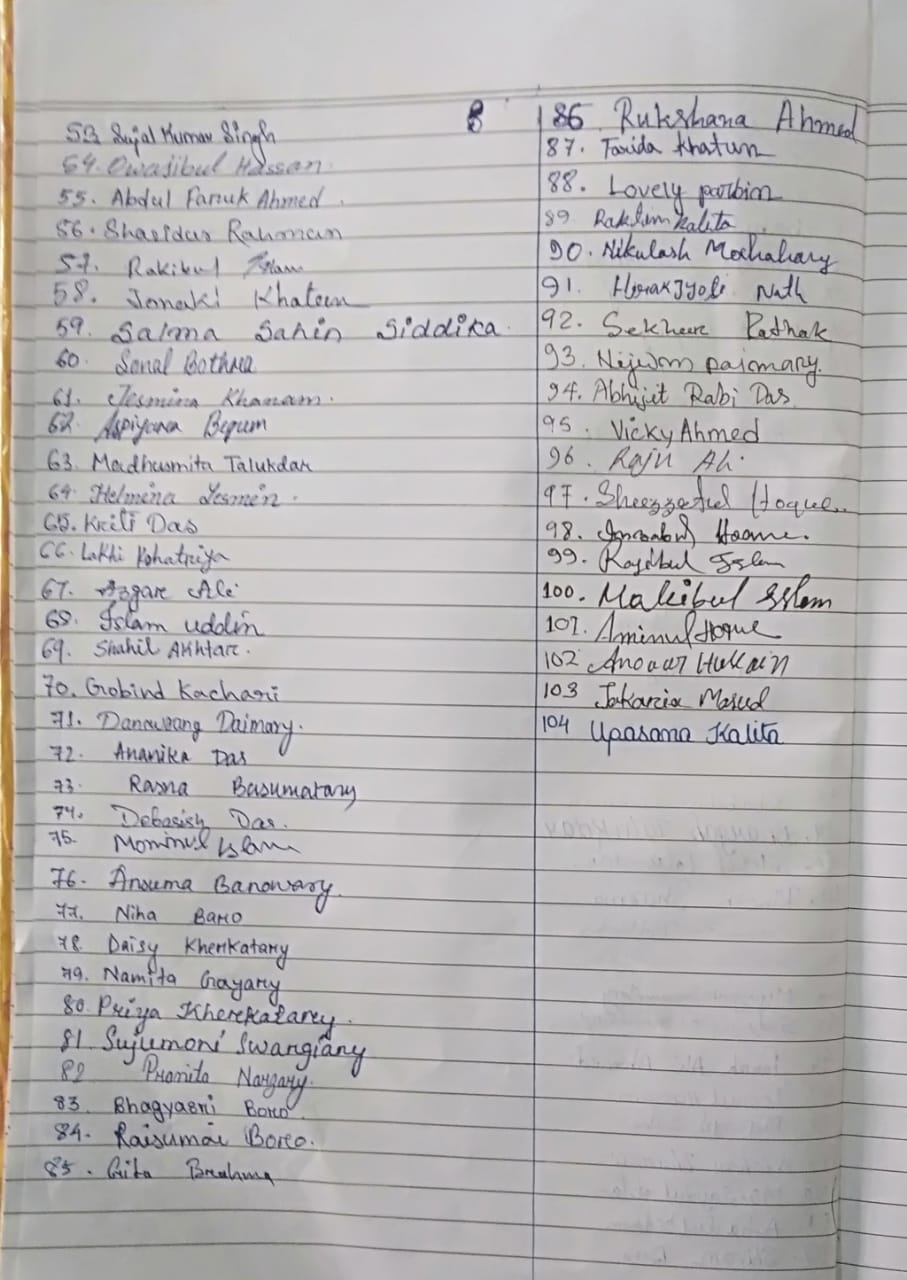 53 Sujal Kumar Singh
54. Owasibul Hassan.
55. Abdul Faruk Ahmed.
56. Shasidur Rahman
57. Rakibul Islam
58. Jonaki Khatun
59. Salma Sahin Siddika.
60. Sonal Bothra
61. Jesmina Khanam.
62. Begum
63. Madhusmita Talukdar
64. Helmina Yesmin.
65. Kriti Das
66. Lakhi Kshatriya
67. Azgare Ali
68. Islam uddin
69. Shahil Akhtar.
70. Gobind Kachari
71. Danawrang Daimary.
72. Ananika Das
73. Rasna Basumatary
74. Debasish Das.
75. Mominul Islam
76. Anouma Banowary.
77. Niha Baro
78. Daisy Kherkatary
79. Namita Gayary
80. Priya Kherekatarey.
81. Sujumoni Swangiary
82 Pronita Narzary.
83. Bhagyasri Boro
84. Raisumai Boro.
85. Gita Brahma
B
86 Rukshana Ahmed
87. Farida Khatun
88. Lovely parbin
89 Raktim Kalita
90. Nikulash Mochahary
91. Hirakjyoti Nath
92. Sekhar Pathak
93. Nijwm Daimary.
94. Abhijit Rabi Das
95. Vicky Ahmed
96. Raju Ali.
97. Hoque.
98.
99. Rajibul Islam
100. Makibul Islam
101. Aminul Hoque
102 Anowar Hussain
103 Jakaria Masud
104 Upasana Kalita